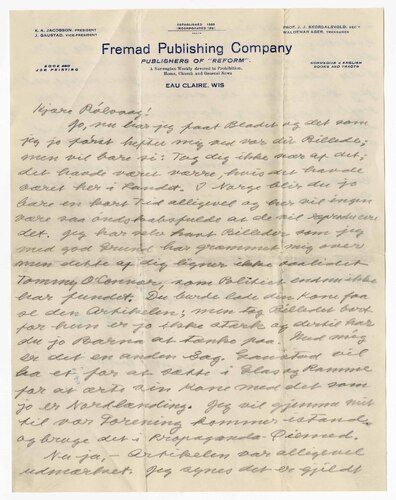 K. A. JACOBSON, PRESIDENT
J. GAUSTAD, VICE-PRESIDENT
ESTABLISHED 1886
INCORPORATED 1891
PROF. J. J. SKORDALSVOLD, SEC'Y
WALDEMAR AGER, TREASURER
Fremad Publishing Company
PUBLISHERS OF "REFORM".
A Norwegian Weekly devoted to Prohibition,
Home, Church and General News
BOOK AND
JOB PRINTING
NORWEGIAN & ENGLISH
BOOKS AND TRACTS
EAU CLAIRE, WIS
Kjære Rölvaag!
Jo, nu har jeg faat Bladet og det som
jeg jo først heftet mig ved var dit Billede;
men vil bare si: Tag dig ikke nær af det;
det havde været værre, hvis det havde
været her i Landet. I Norge blir du jo
bare en kort Tid alligevel og her vil ingen
være saa ondskabsfulde at de vil reproducere
det. Jeg har selv havt Billeder som jeg
med god Grund har græmmet mig over
men dette af dig ligner ikke saalidet
Tommy O'Connor, som Politiet endnu ikke
har fundet. Du burde lade din Kone faa
se den Artikelen; men tag Billedet bort
for hun er jo ikke stærk og dertil har
du jo Barna at tænke paa. Med mig
er det en anden Sag. Gaustad vil
ha et for at sætte i Glas og Ramme
for at ærte sin Kone med det som
jo er Nordlænding. Jeg vil gjemme mit
til vor Forening kommer istand
og bruge det i Propaganda-Øiemed.
Nu ja, – Artikelen var alligevel
udmærket. Jeg synes det er gjildt